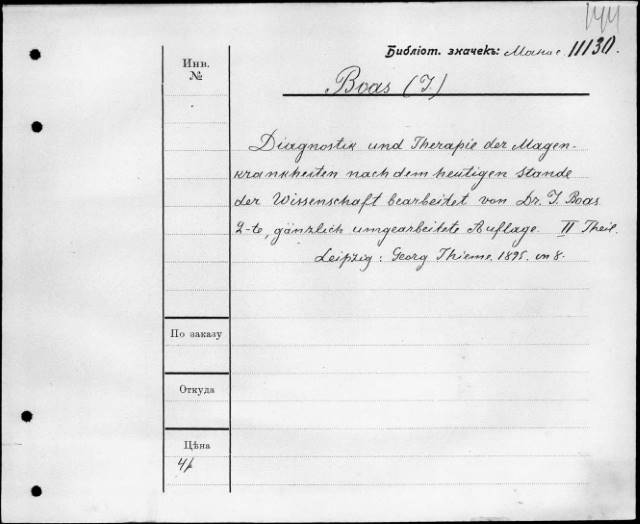 Библіот. значекъ: Макас. 11130.
Инв. №
Boas (J.)
Diagnostik und Therapie der Magen-
krankheiten nach dem heutigen Stande
der Wissenschaft bearbeitet von Dr. J. Boas
2-te, gänzlich umgearbeitete Auflage. II Theil.
Leipzig: Georg Thieme. 1895. in 8.
По заказу
Откуда
Цѣна